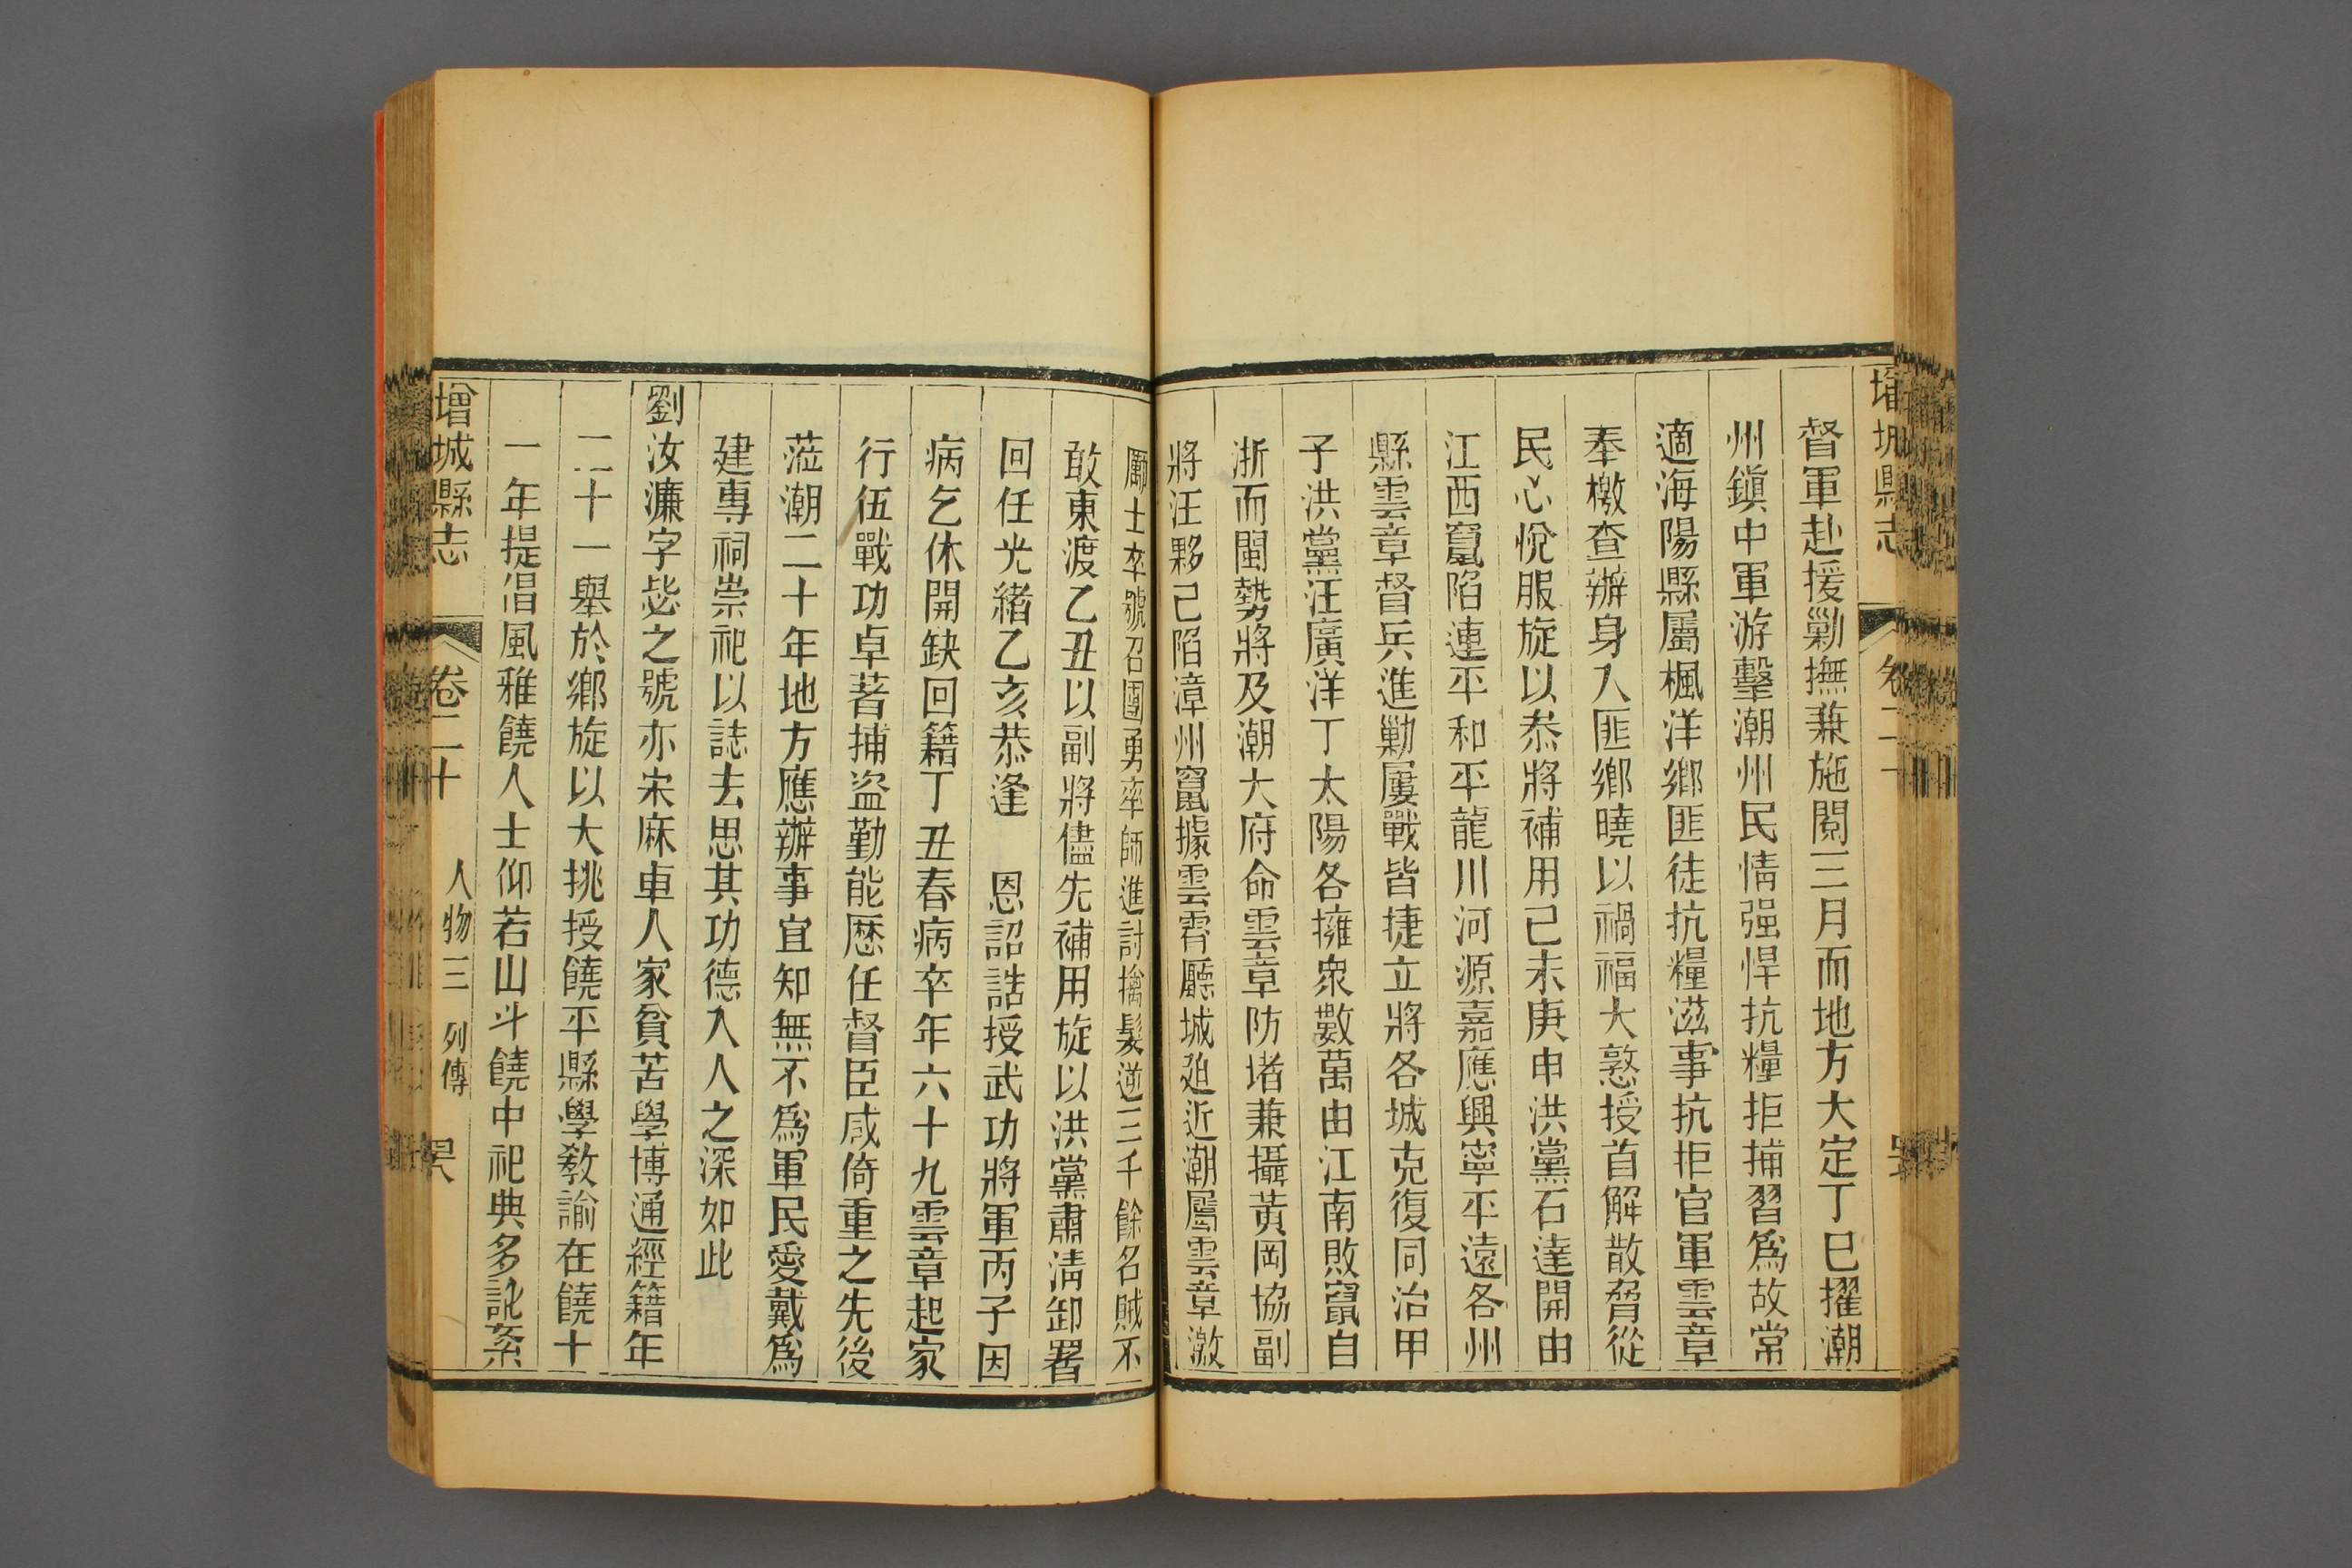 督軍赴援剿撫兼施閱三月而地方大定丁巳擢潮
州鎭中軍游擊潮州民情强悍抗糧拒捕習爲故常
適海陽縣屬楓洋鄉匪徒抗糧滋事抗拒官軍雲章
奉檄查辦身入匪鄉曉以禍福大憝授首解散脅從
民心悅服旋以叅將補用己未庚申洪黨石達開由
江西竄陷連平和平龍川河源嘉應興寧平遠各州
縣雲章督兵進勦屢戰皆捷立將各城克復同治甲
子洪黨汪廣洋丁太陽各擁衆數萬由江南敗竄自
浙而閩勢將及潮大府命雲章防堵兼攝黃岡協副
將汪夥已陷漳州竄據雲霄廳城廹近潮屬雲章激
厲士卒號召團勇率師進討擒髮逆三千餘名賊不
敢東渡乙丑以副將儘先補用旋以洪黨肅淸卸署
回任光緖乙亥恭逢 恩詔誥授武功將軍丙子因
病乞休開缺回籍丁丑春病卒年六十九雲章起家
行伍戰功卓著捕盜勤能歷任督臣咸倚重之先後
蒞潮二十年地方應辦事宜知無不爲軍民愛戴爲
建專祠崇祀以誌去思其功德入人之深如此
劉汝濂字毖之號亦宋麻車人家貧苦學博通經籍年
二十一舉於鄉旋以大挑授饒平縣學敎諭在饒十
一年提倡風雅饒人士仰若山斗饒中祀典多訛紊
增城縣志 卷二十 人物三 列傳